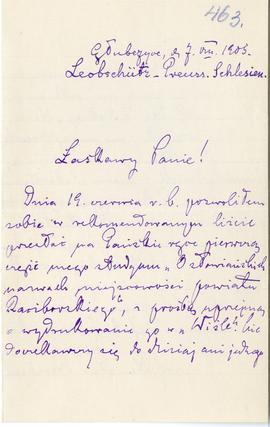 463.
Głubczyce, d. 7. VIII. 1905.
Leobschütz - Preuss. Schlesien.
Łaskawy Panie!
Dnia 19. czerwca r. b. pozwoliłem
sobie w rekomendowanym liście
przesłać na Pańskie ręce pierwszą
część mego studyum „O słowiańskich
nazwach miejscowości powiatu
Raciborskiego", z prośbą uprzejmą
o wydrukowanie go w „Wiśle". Nie
doczekawszy się do dzisiaj ani jednego